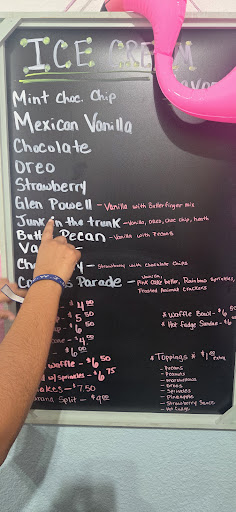 ICE CREAM
Mint Choc. Chip
Mexican Vanilla
Chocolate
Oreo
Strawberry
Glen Powell - Vanilla with Butterfinger mix
Junk in the trunk - Vanilla, Oreo, choc chip, heath
Pecan - Vanilla with Pecans
Va
Ch y - Strawberry with chocolate chips
C Parade - Vanilla,
Pink cake batter, Rainbow Sprinkles,
Frosted Animal Crackers
$4.00
$5.50
$6.50
- $4.
$6.00
waffle - $6.50
d w/ sprinkles - $6.75
akes - $7.50
anana Split - $9.00
* Waffle Bowl - $6.
* Hot Fudge Sundae - $6
* Toppings * $1.00 extra
- Pecans
- Peanuts
- Marshmallows
- Oreos
- Sprinkles
- Pineapple
- Strawberry Sauce
- Hot Fudge